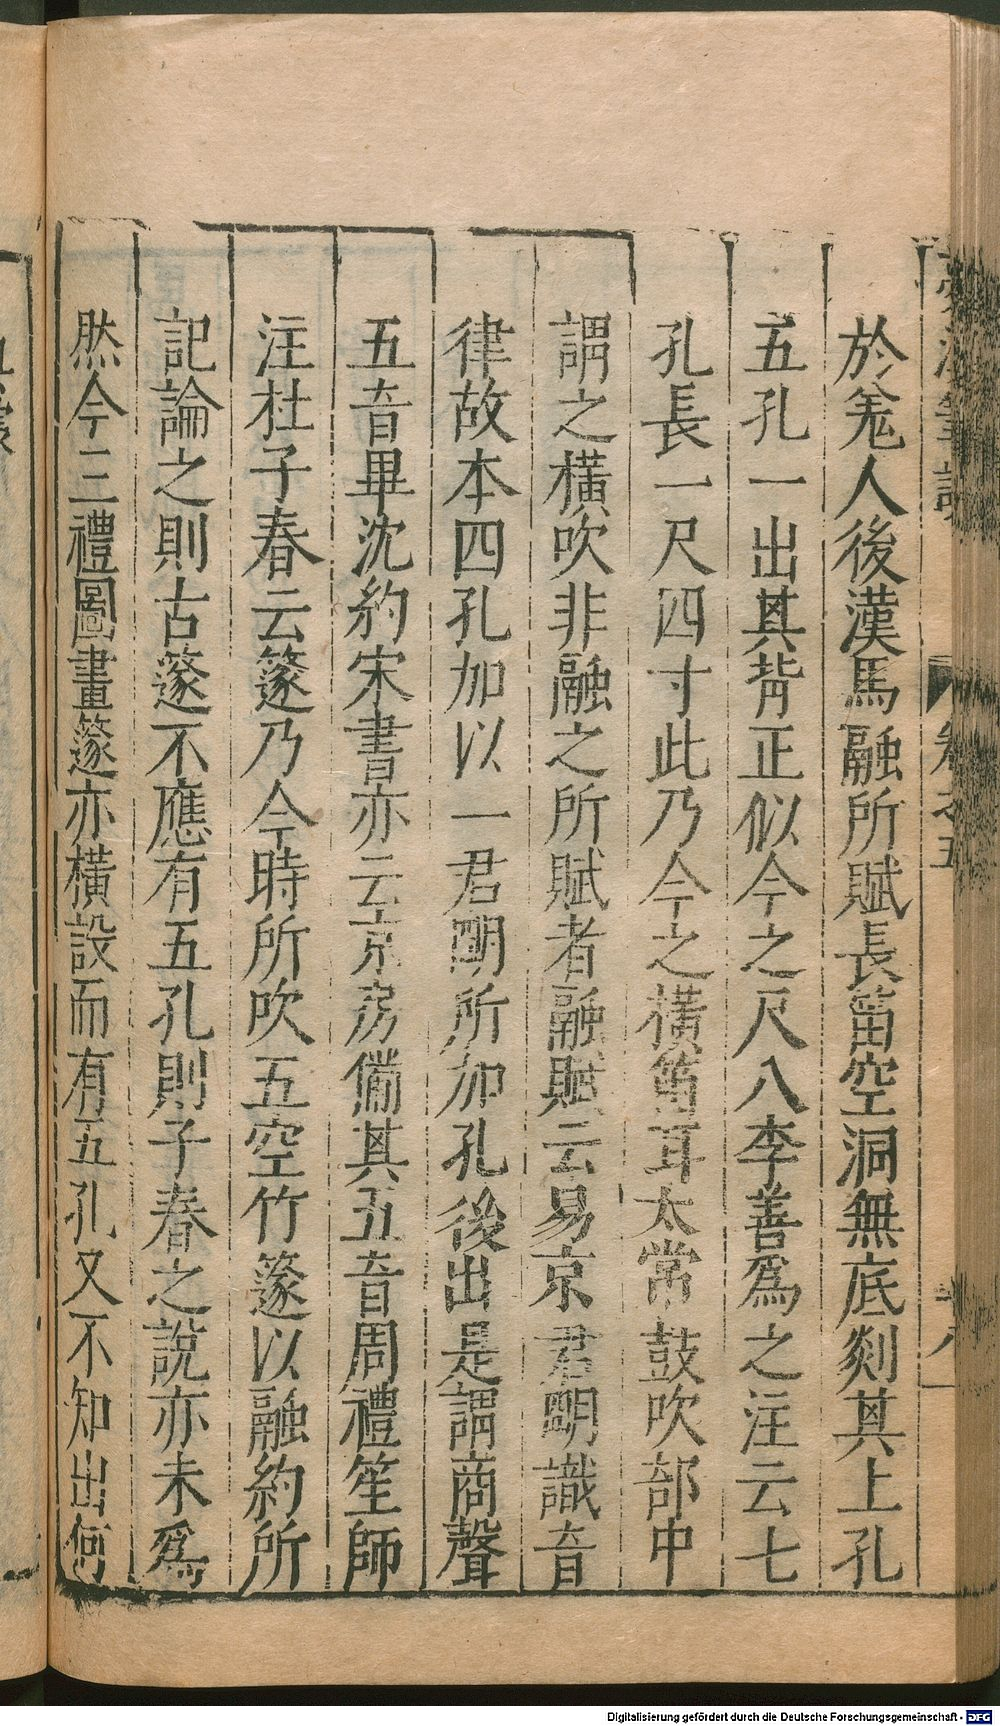 於羗人後漢馬融所賦長笛空洞無底剡其上孔
五孔一出其背正似今之尺八李善爲之注云七
孔長一尺四寸此乃今之橫笛耳太常鼓吹部中
謂之橫吹非融之所賦者融賦云易京君明識音
律故本四孔加以一君明所加孔後出是謂商聲
五音畢沈約宋書亦云京房備其五音周禮笙師
注杜子春云篴乃今時所吹五空竹篴以融約所
記論之則古篴不應有五孔則子春之說亦未爲
然今三禮圖畫篴亦橫設而有五孔又不知出何
卷之五
Digitalisierung gefördert durch die Deutsche Forschungsgemeinschaft - DFG